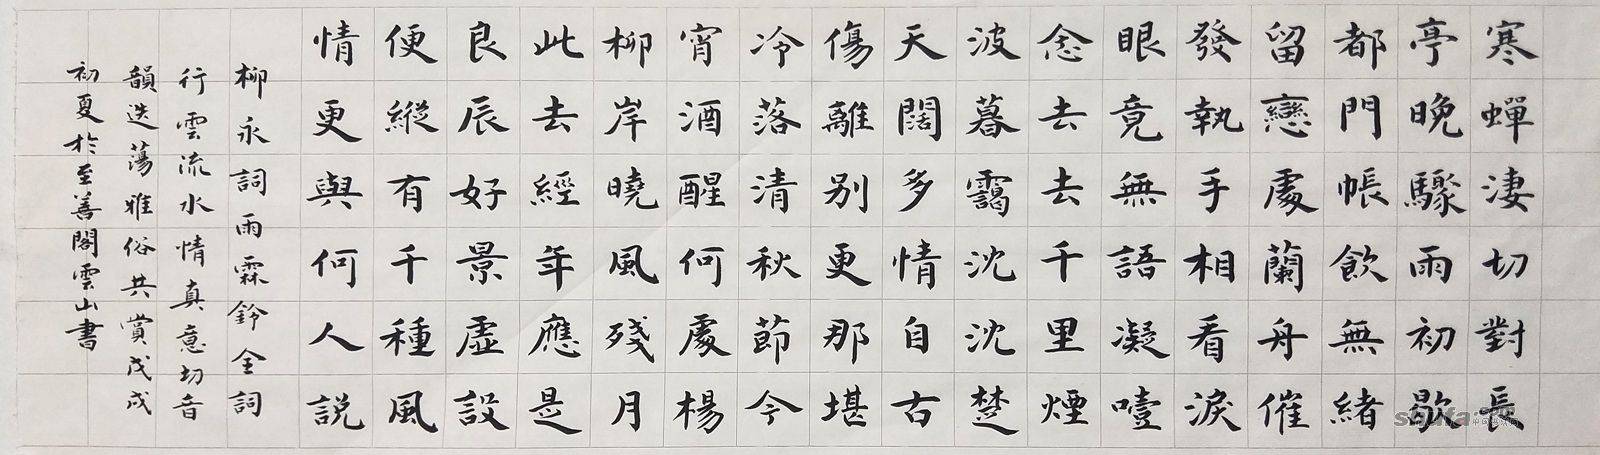 寒蟬淒切對長
亭晚驟雨初歇
都門帳飲無緒
留戀處蘭舟催
發執手相看淚
眼竟無語凝噎
念去去千里煙
波暮靄沈沈楚
天闊多情自古
傷離別更那堪
冷落清秋節今
宵酒醒何處楊
柳岸曉風殘月
此去經年應是
良辰好景虛設
便縱有千種風
情更與何人說
柳永詞雨霖鈴全詞
行雲流水情真意切音
韻迭蕩雅俗共賞戊戌
初夏於至善閣雲山書